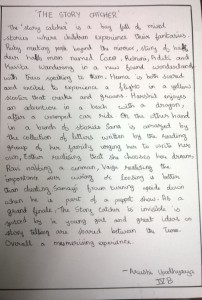 'THE STORY CATCHER'
The 'story catcher' is a bag full of mixed
stories where children experience their fantasies.
Ruby meeting peek beyond the mirror, story of
two balls man named Case,
Monica wondering in a new found wonderland
with trees speaking to them, Meena is both scared
and excited to experience a flight in a yellow
that creaks and groans. Harshit enjoys
an adventure in a beach with a dragon,
after a cramped car ride. On the other hand
in a bunch of stories Sana is amazed by
the collection of letters written by the reading
group of her family, urging her to write her
own, Esther realising that she chooses her dream,
Ravi robbing a caravan, Vijay realising the
importance with winning or losing is better
than cheating, Samayi fears turning upside down
when he is part of a puppet show. As a
grand finale, The Story Catcher is invisible is
by a young girl and great ideas on
story telling are shared between the Two.
Overall a mesmerising experience.
- Arushi Upadhyaya
IV B